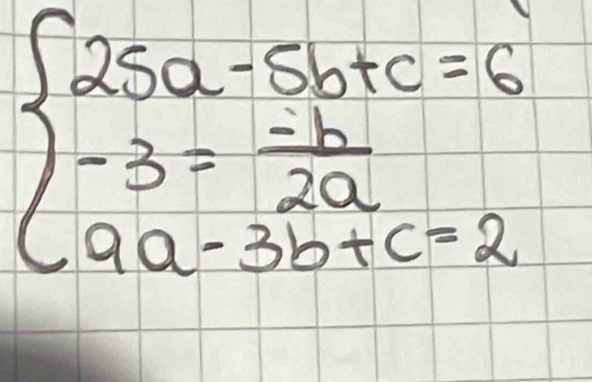 25a - 5b + c = 6
-3 = -b/2a
9a - 3b + c = 2